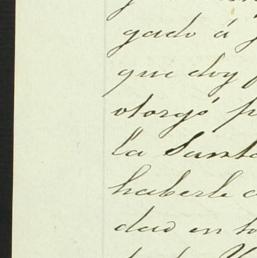 gado á
que doy
otorgó p
la Santa
haberle
dad en